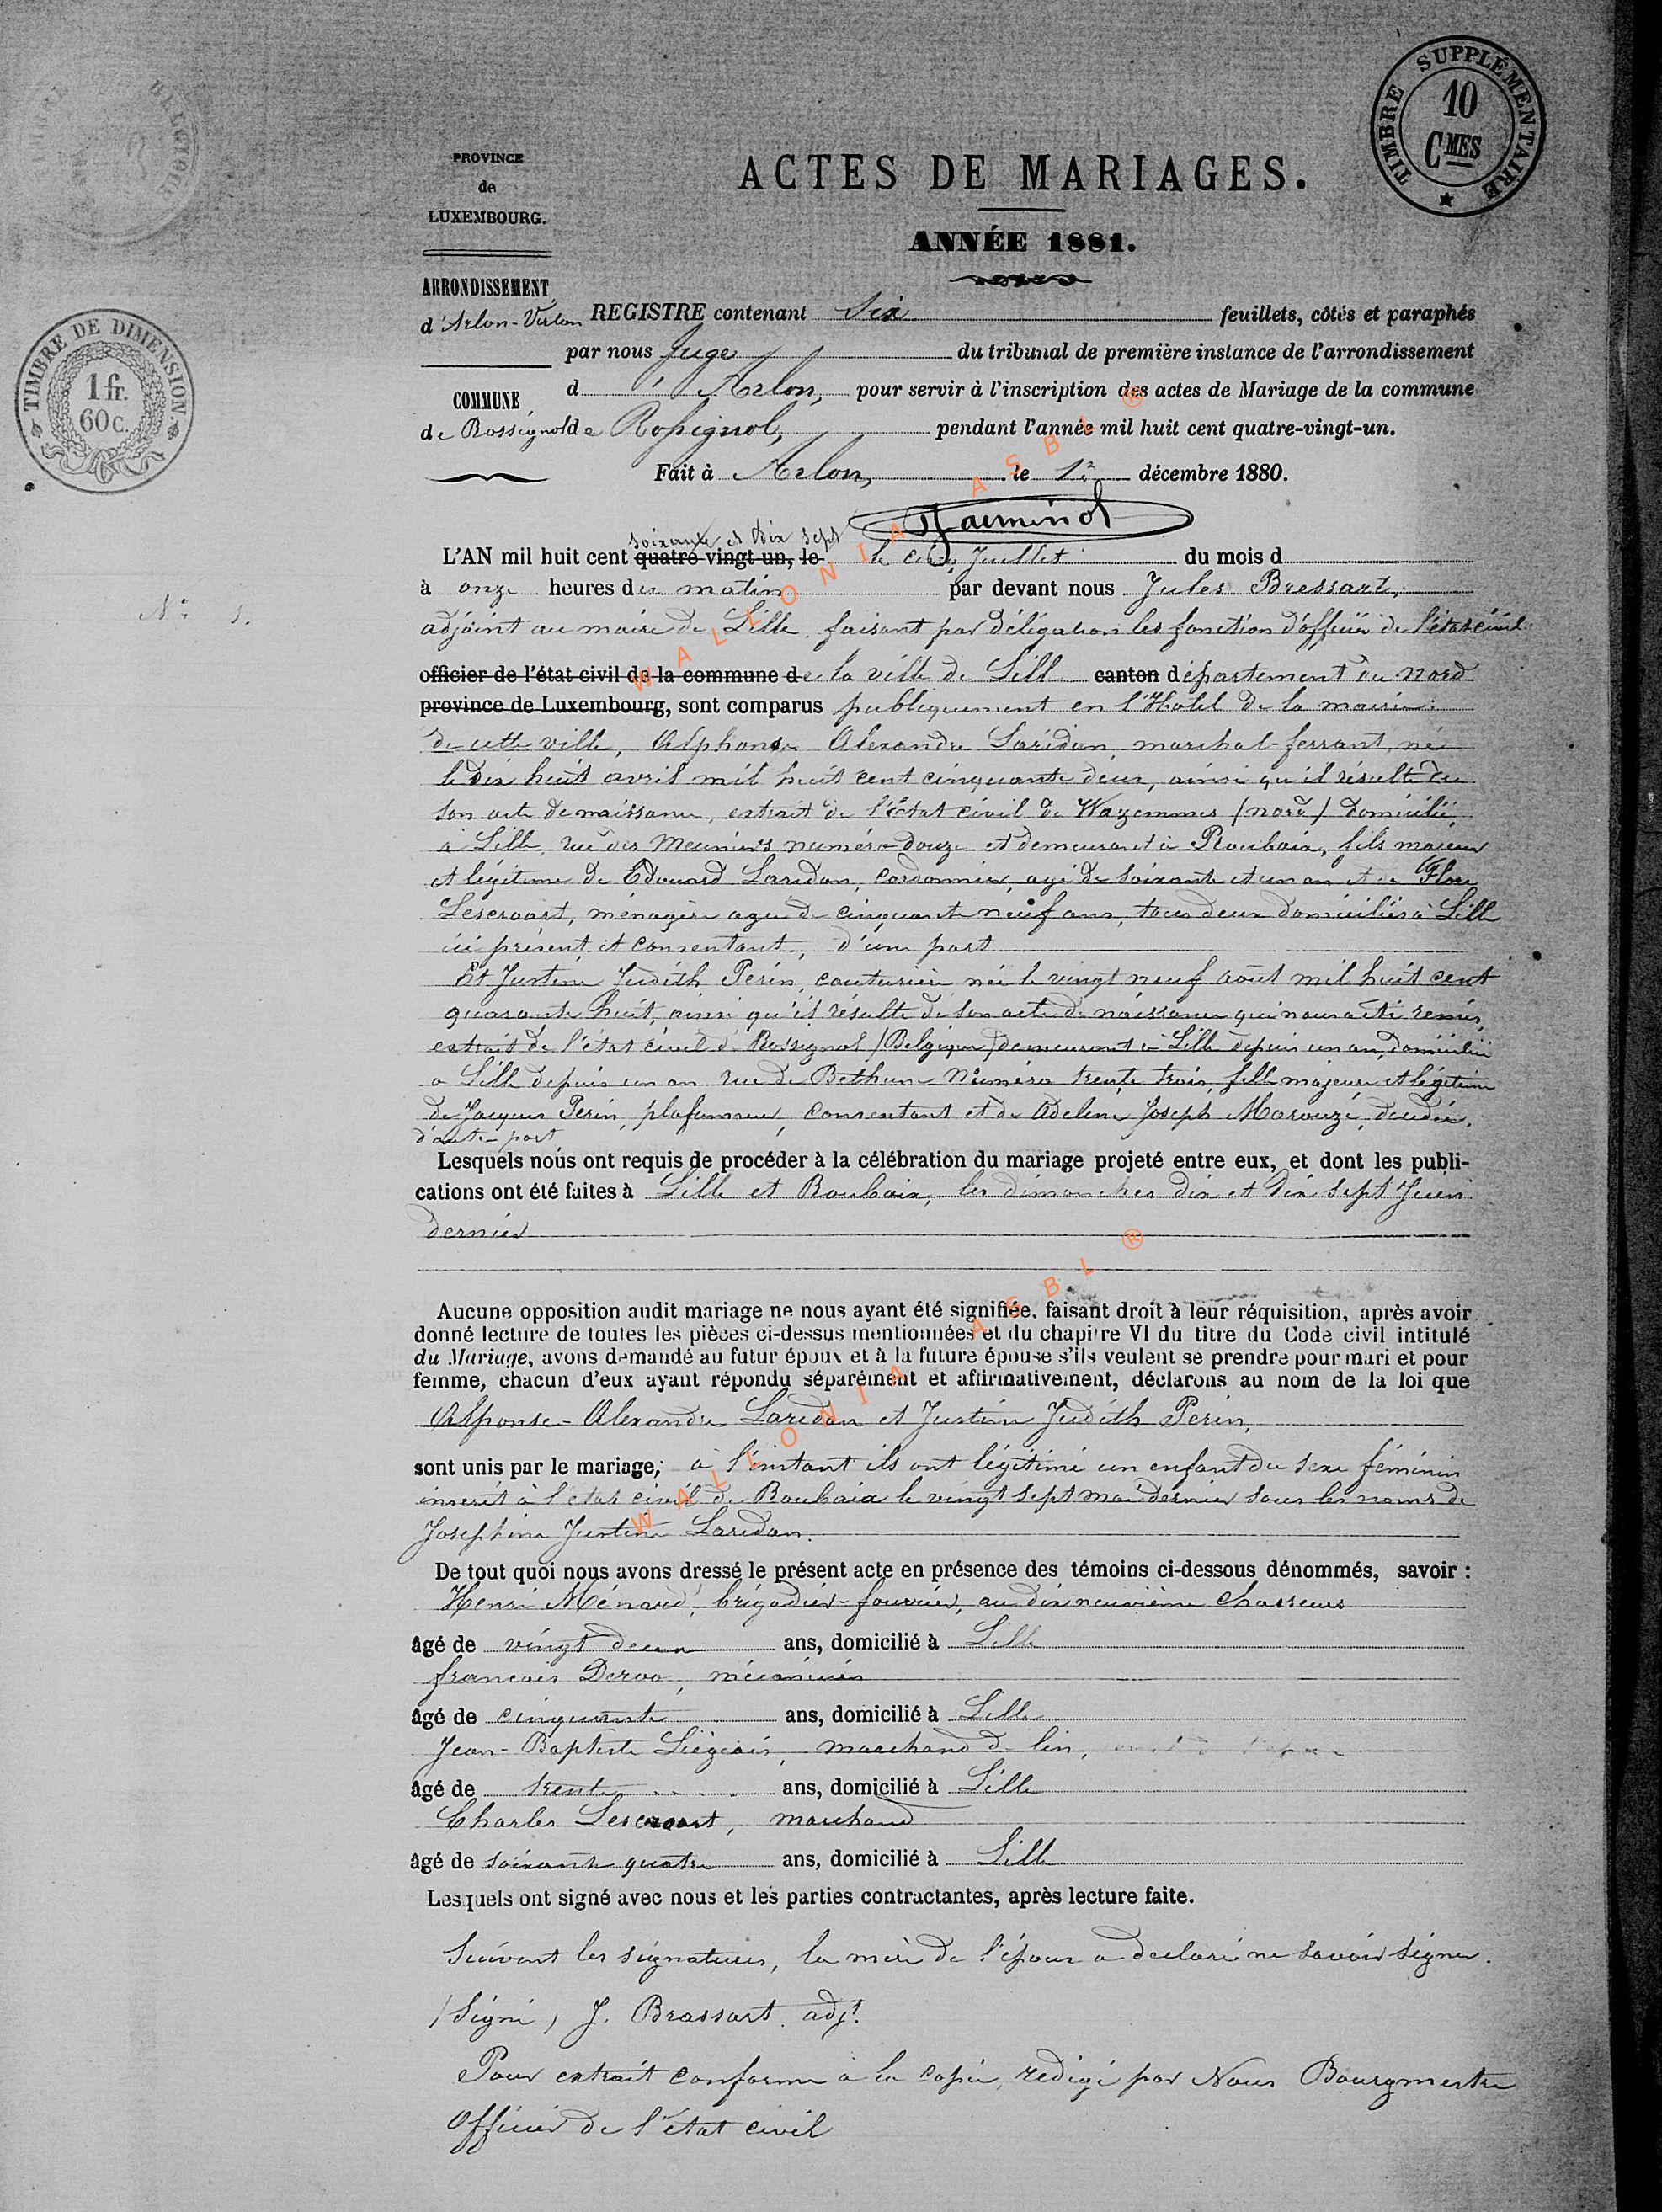 TIMBRE SUPPLÉMENTAIRE
10
CMES
PROVINCE
de
LUXEMBOURG.
ACTES DE MARIAGES.
ANNÉE 1881.
ARRONDISSEMENT
d'Arlon-Virton REGISTRE contenant Six feuillets, côtés et paraphés
par nous Juge du tribunal de première instance de l'arrondissement
d' Arlon, pour servir à l'inscription des actes de Mariage de la commune
COMMUNE
de Rossignol de Rossignol, pendant l'année mil huit cent quatre-vingt-un.
Fait à Arlon, le 1er décembre 1880.
TIMBRE DE DIMENSION.
1 fr.
60 c.
soixante et dix sept
L'AN mil huit cent quatre vingt un, le le cinq Juillet du mois d
à onze heures du matin par devant nous Jules Bressart,
N° 1.
adjoint au maire de Lille, faisant par délégation les fonction d'officier de l'état civil
officier de l'état civil de la commune de la ville de Lill canton département du nord
province de Luxembourg, sont comparus publiquement en l'Hotel de la mairie
de cette ville, Alphonse Alexandre Laridan, marchal-ferrant, né
le dix huit avril mil huit cent cinquante deux, ainsi qu'il résulte de
son acte de naissance, extrait de l'état civil de Wazemmes (nord) domicilié
à Lille, rue des Meuniers numéro douze et demeurant à Roubaix, fils majeur
et légitime de Edouard Laridan, cordonnier, agé de soixante et un an et de Flore
Lescroart, ménagère agée de cinquante neuf ans, tous deux domiciliés à Lille
ici présent et consentant, d'une part
Et Justine Judith Perin, couturière née le vingt neuf août mil huit cent
quarante huit, ainsi qu'il résulte de son acte de naissance qui nous a été remis,
extrait de l'état civil de Rossignol (Belgique) demeurant à Lille depuis un an, domiciliée
a Lille depuis un an rue de Bethune Numéro trente trois, fille majeure et légitime
de Jacques Perin, plafonneur, consentant et de Adeline Joseph Marouzé, décédée,
d'autre part
Lesquels nous ont requis de procéder à la célébration du mariage projeté entre eux, et dont les publi-
cations ont été faites à Lille et Roubaix, les dimanches dix et dix sept Juin
dernier
Aucune opposition audit mariage ne nous ayant été signifiée, faisant droit à leur réquisition, après avoir
donné lecture de toutes les pièces ci-dessus mentionnées et du chapitre VI du titre du Code civil intitulé
du Mariage, avons demandé au futur époux et à la future épouse s'ils veulent se prendre pour mari et pour
femme, chacun d'eux ayant répondu séparément et affirmativement, déclarons au nom de la loi que
Alponse-Alexandre Laridan et Justine Judith Perin,
sont unis par le mariage; à l'instant ils ont légitimé un enfant du sexe féminin
inscrit à l'état civil de Roubaix le vingt sept mai dernier sous les noms de
Joséphine Justine Laridan.
De tout quoi nous avons dressé le présent acte en présence des témoins ci-dessous dénommés, savoir :
Henri Ménard, brigadier-fourrier, au dix neuvième chasseurs
âgé de vingt deux ans, domicilié à Lille
françois Deroo, mécanicien
âgé de cinquante ans, domicilié à Lille
Jean-Baptiste Liégeois, marchand de lin,
âgé de trente ans, domicilié à Lille
Charles Lescroart, marchand
âgé de soixante quatre ans, domicilié à Lille
Lesquels ont signé avec nous et les parties contractantes, après lecture faite.
Suivent les signatures, la mère de l'époux a declaré ne savoir signer.
(Signé) J. Brassart. adjt.
Pour extrait conforme à la copie, redigé par Nous Bourgmestre
Officier de l'état civil
WALLONIA ASBL ®
WALLONIA ASBL ®